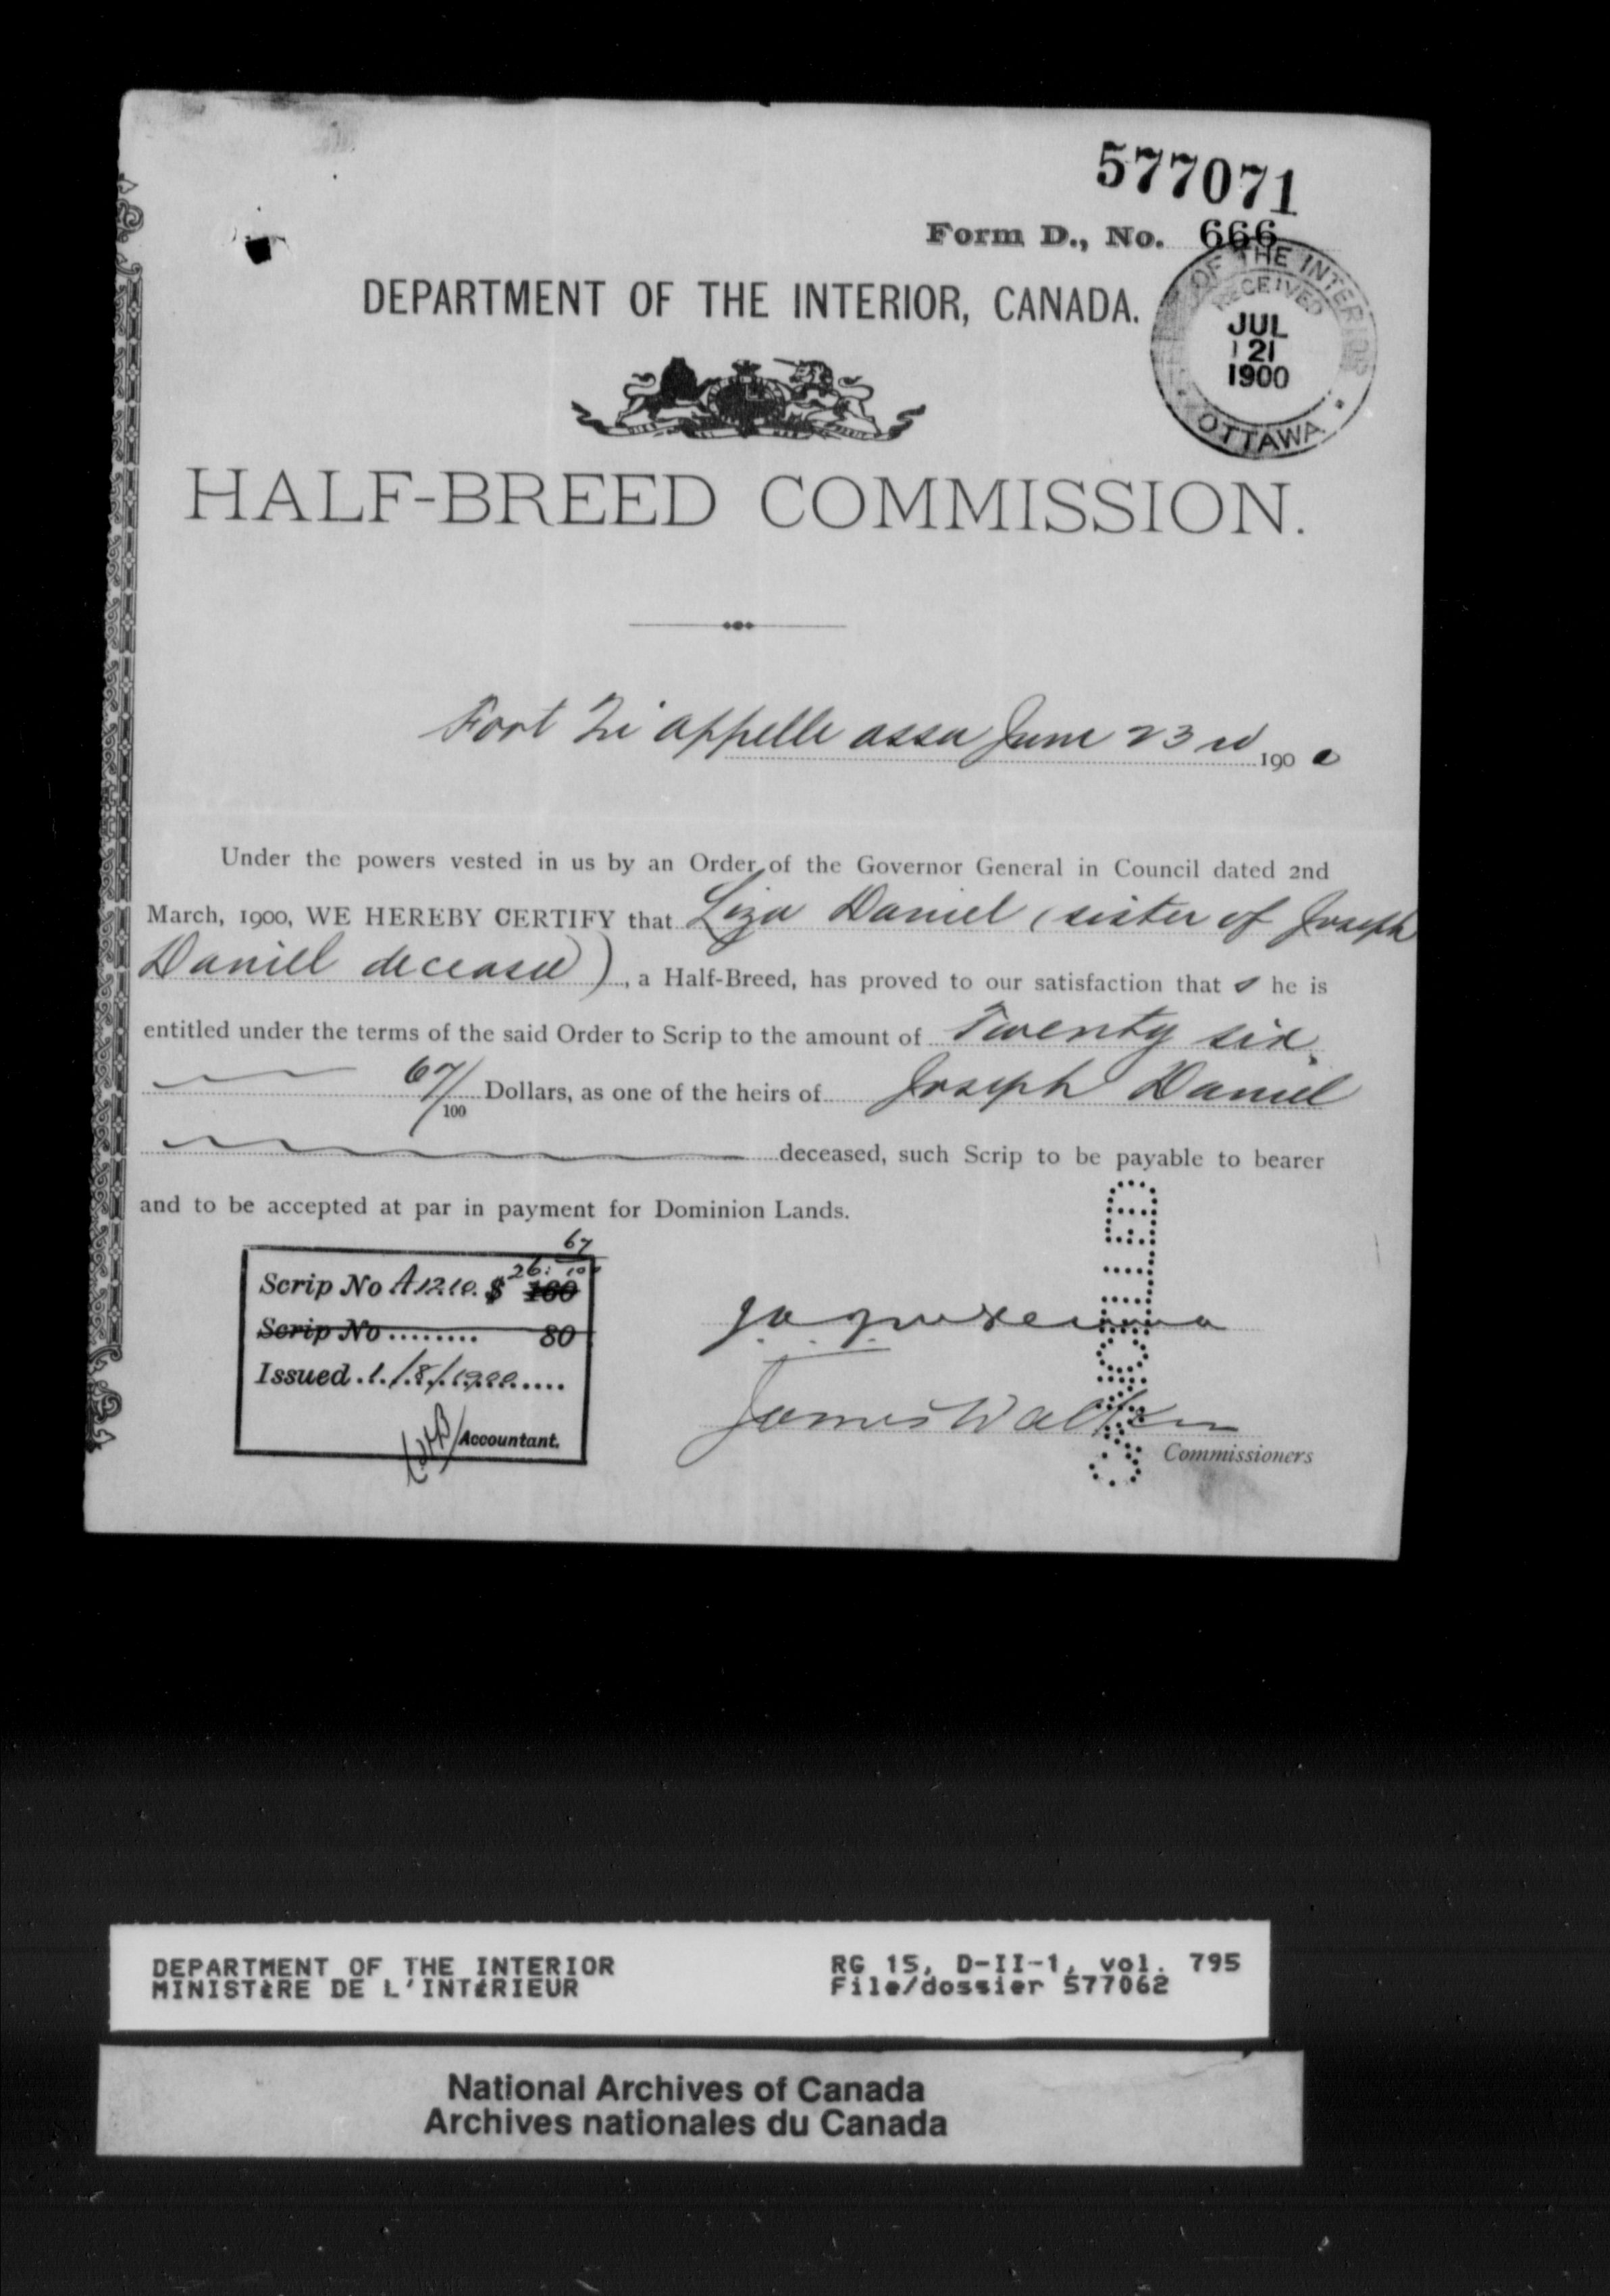 577071
Form D., No. 666
DEPARTMENT OF THE INTERIOR, CANADA.
OF THE INTERIOR
RECEIVED
JUL
21
1900
OTTAWA
HALF-BREED COMMISSION.
Fort Qu'appelle assa June 23rd 1900
Under the powers vested in us by an Order of the Governor General in Council dated 2nd
March, 1900, WE HEREBY CERTIFY that Liza Daniel (sister of Joseph
Daniel deceased), a Half-Breed, has proved to our satisfaction that s he is
entitled under the terms of the said Order to Scrip to the amount of Twenty six
67/100 Dollars, as one of the heirs of Joseph Daniel
deceased, such Scrip to be payable to bearer
and to be accepted at par in payment for Dominion Lands.
Scrip No A1210. $ 26. 67/100 160
Scrip No ........ 80
Issued 1/8/1900
Accountant.
CANCELLED
James Walker
Commissioners
DEPARTMENT OF THE INTERIOR
MINISTÈRE DE L'INTÉRIEUR
RG 15, D-II-1, vol. 795
File/dossier 577062
National Archives of Canada
Archives nationales du Canada